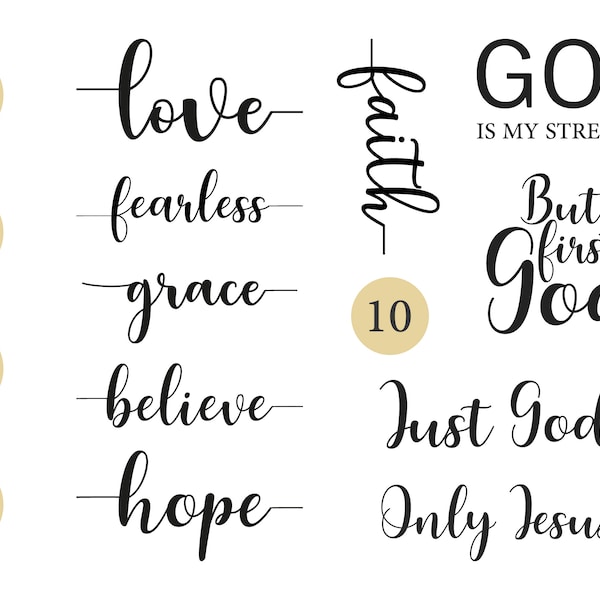 love
fearless
grace
believe
hope
faith
10
GO
IS MY STRE
But
first
God
Just God
Only Jesus